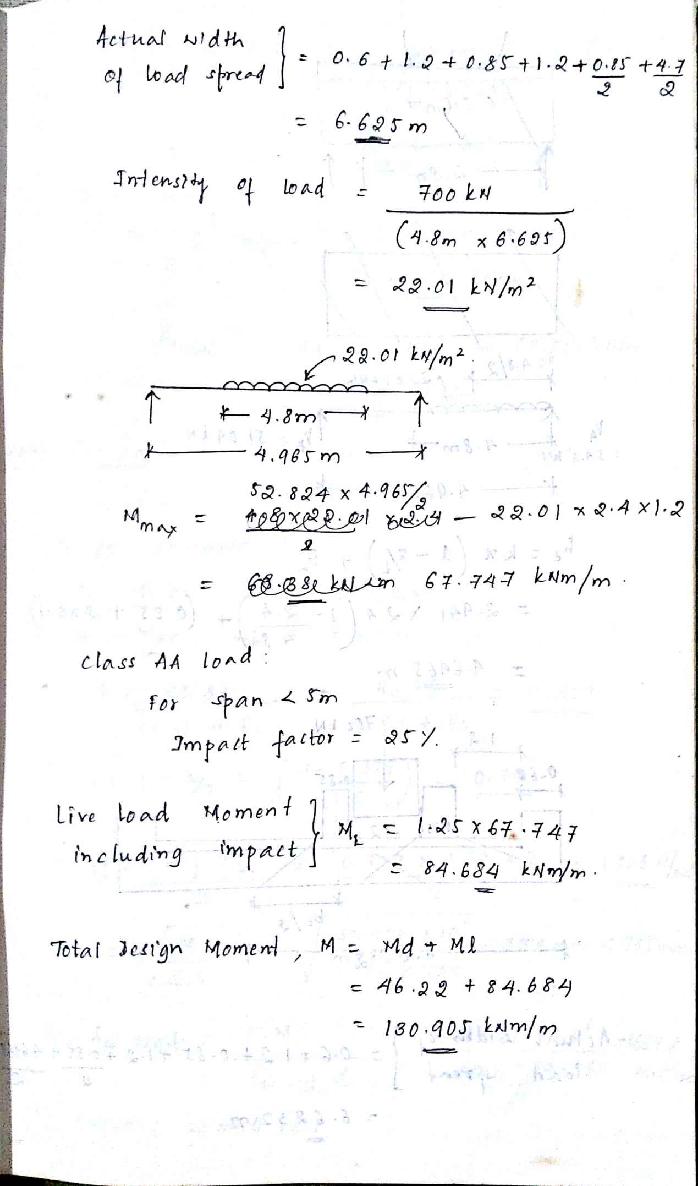 Actual width of load spread } = 0.6 + 1.2 + 0.85 + 1.2 + 0.85/2 + 4.7/2
= 6.625 m
Intensity of load = 700 kN / (4.8m x 6.625)
= 22.01 kN/m²
22.01 kN/m².
4.8m
4.965 m
Mmax = 52.824 x 4.965/2 - 22.01 x 2.4 x 1.2
= 67.747 kNm/m.
Class AA load :
For span < 5m
Impact factor = 25 %.
Live load Moment including impact } Mℓ = 1.25 x 67.747
= 84.684 kNm/m.
Total Design Moment, M = Md + Ml
= 46.22 + 84.684
= 130.905 kNm/m